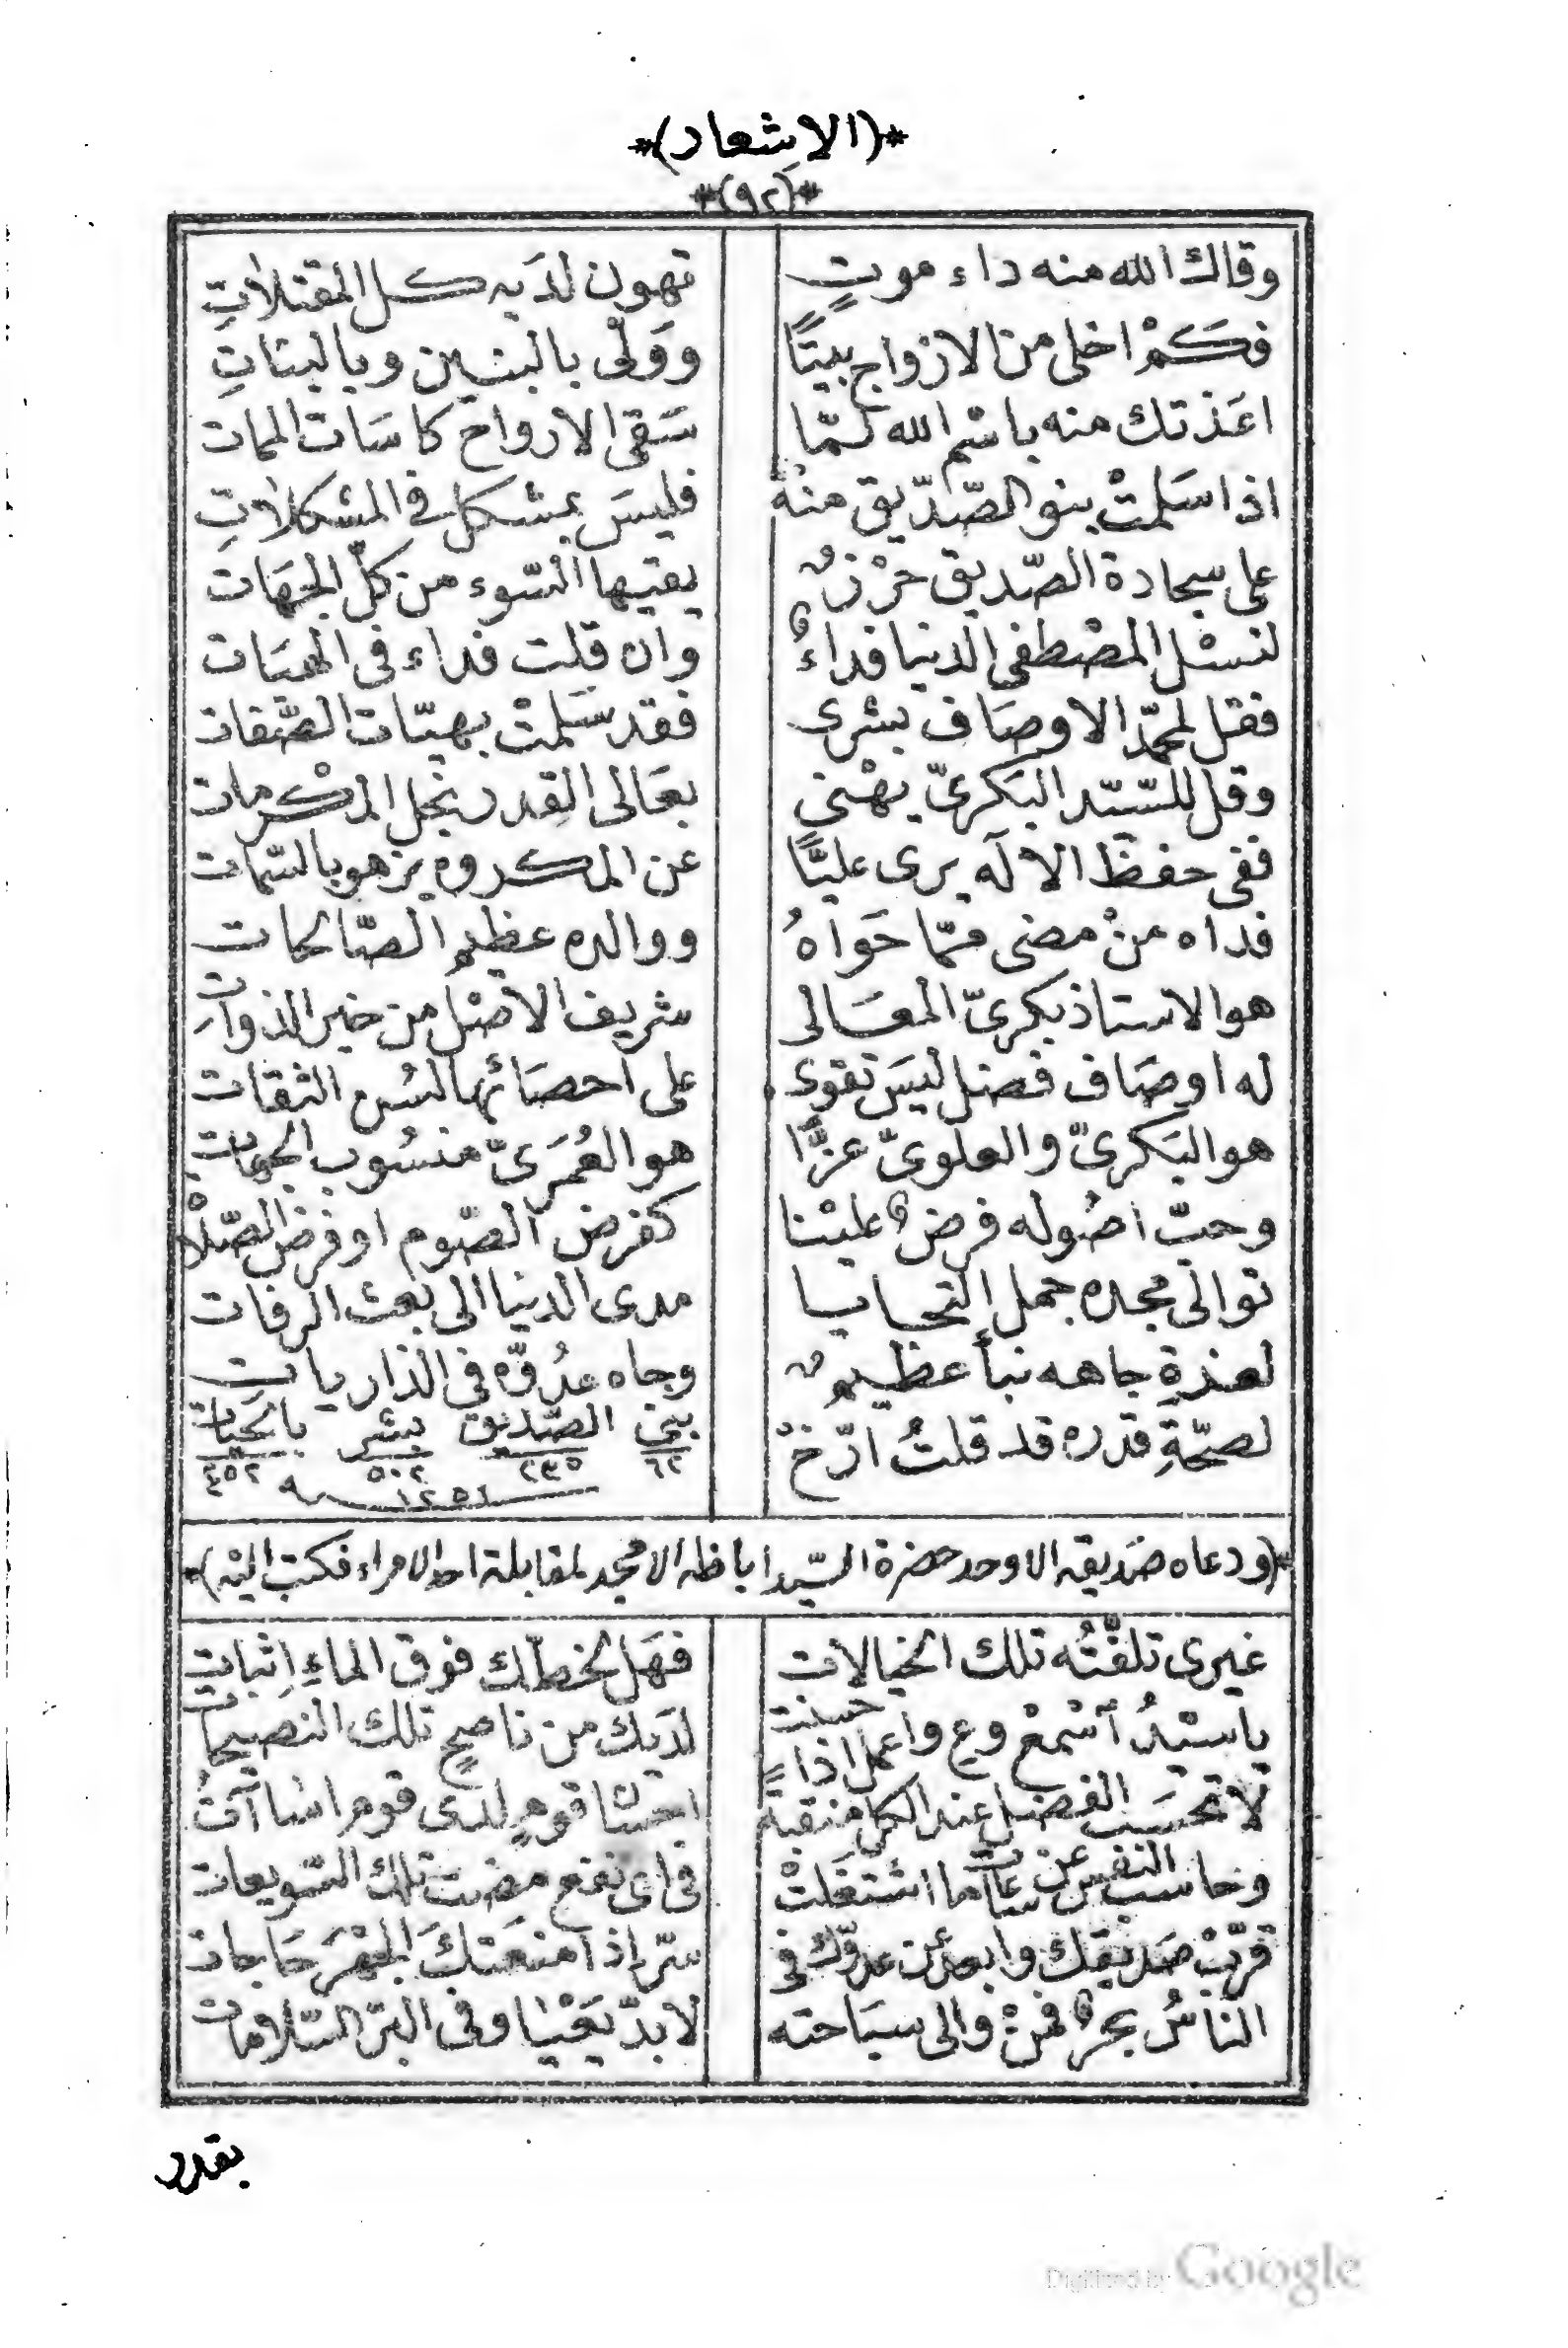 *(الاشعار)*
*(٩٢)*
وقاك الله منه داء موتٍ تهون لدَيه كل المقتلاتِ
فكَمْ اخلى من الازواج بيتًا ووَلّى بالبنين وبالبناتِ
اعَذتك منه باسْم الله لمّا سَقى الارواح كاسَات الممات
اذا سَلمتْ بنو الصّدّيق منهُ فليسَ بمشكل في المشكلاتِ
على سجادة الصّديق حرْزٌ يقيها السّوء من كلّ الجهَات
لنسْل المصْطفى الدنيا فداءٌ وان قلت فداء في الهبَات
فقل لمحمّد الاوصَاف بشرى فقد سَلمتْ بهيّات الصّفات
وقل للسّيّد البَكريّ يهْنى بعَالى القِدر نجل المكْرمات
ففى حفظ الالَه يرى عليًّا عن المكروه يزهو بالسّمات
فداه منْ مضى ممّا حَواهُ ووالده عظيم الصّالحات
هو الاستاذ بكريّ المعَالى شريف الاصْل من خير الذوات
له اوصَاف فضل ليسَ تقوى على احصَائها لسُن الثقات
هو البَكريّ والعلويّ عزًّا هو العُمَريّ منسُوب الجهات
وحبّ اصُوله فرضٌ عليْنا كفرض الصّوم او فرض الصّلاة
توالى مجده جمل التحايا مدى الدنيا الى بعث الرفات
لعذرةِ جاهه نبأ عظيمٌ وجاه عدُوّه فى الذاريات
لصحّةِ قدره قد قلتُ ارّخْ بنى الصّديق بشر بالحيَات
٦٢ ٢٣٥ ٥٠٢ ٤٥٢
١٢٥١
*(ودعاه صَديقه الاوحد حضرة السّيد اباظه الامجد لمقابلة احد الامراء فكتب اليْه)*
غيرى تلفّتُه تلك الخيالات فهَل لخطّك فوق الماءِ اِثبات
يا سيْدُ اَسْمعْ وعِ واعمل اذا حسنت لدَيك من ناصحٍ تلك النصيحات
لا تحسَب الفضل عند الكل منقبةً احسَان قومٍ لدى قوم اساآتُ
وحاسب النفس عن ساعات ما اشتغَلتْ فى اى نفع مضت تلك السّويعات
قرّبْ صَديقك وابعد عن عدوّك فى سرّ إذا منعَتكَ الجهْرَ حَاجات
الناسُ بحرٌ فمنْ والى سبَاحته لا بدّ يَعْيا وفى البرّ السّلامات
بقدر
Digitized by Google